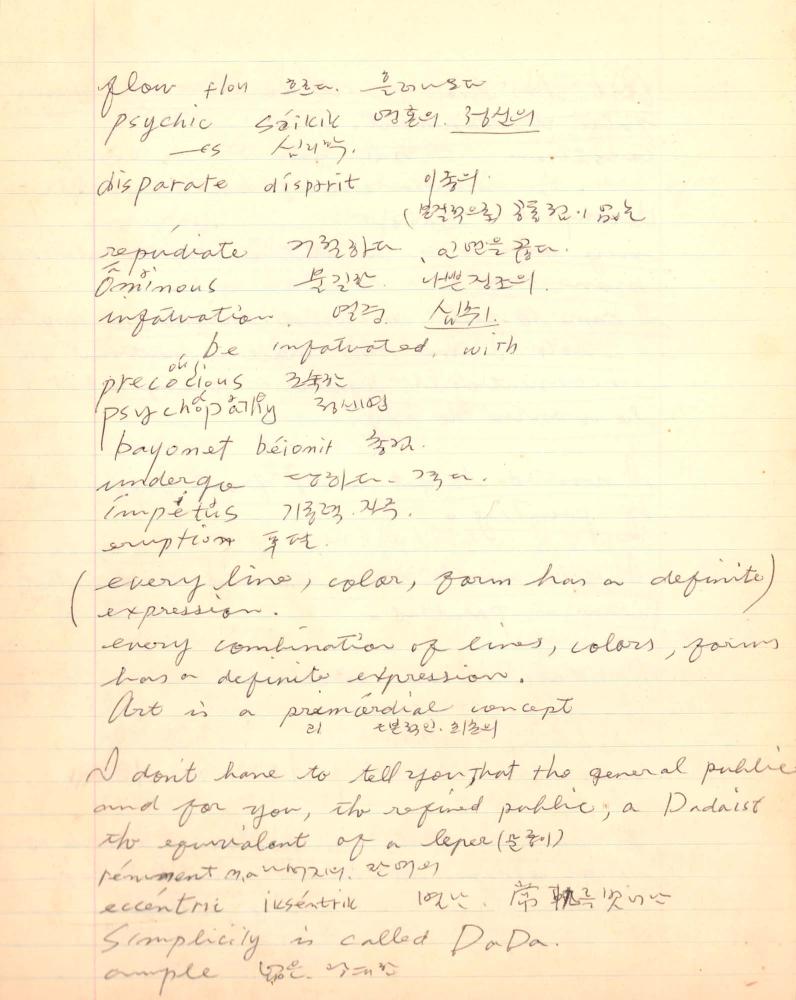 flow flou 흐르다. 흘러나오다
psychic sáikik 영혼의. 정신의
—cs 심리학.
disparate dísparit 이종의.
(본질적으로) 공통점이 없는
repúdiate 거절하다, 인연을 끊다.
Óminous 불길한. 나쁜징조의.
infatuation. 열중. 심취.
be infatuated, with
precocious 조숙한
psychopathy 정신병
bayonet béionit 총검.
undergo 당하다. 겪다.
ímpetus 기동력. 자극.
eruption 폭발.
(every line, color, form has a definite)
expression.
every combination of lines, colors, forms
has a definite expression.
Art is a primordial concept
근본적인. 최초의
I don't have to tell you that the general public
and for you, the refined public, a Dadaist
the equivalent of a leper (문둥이)
eccéntric ikséntrik 별난. 常軌를 벗어난
Simplicity is called DaDa.
ample 넓은. 광대한